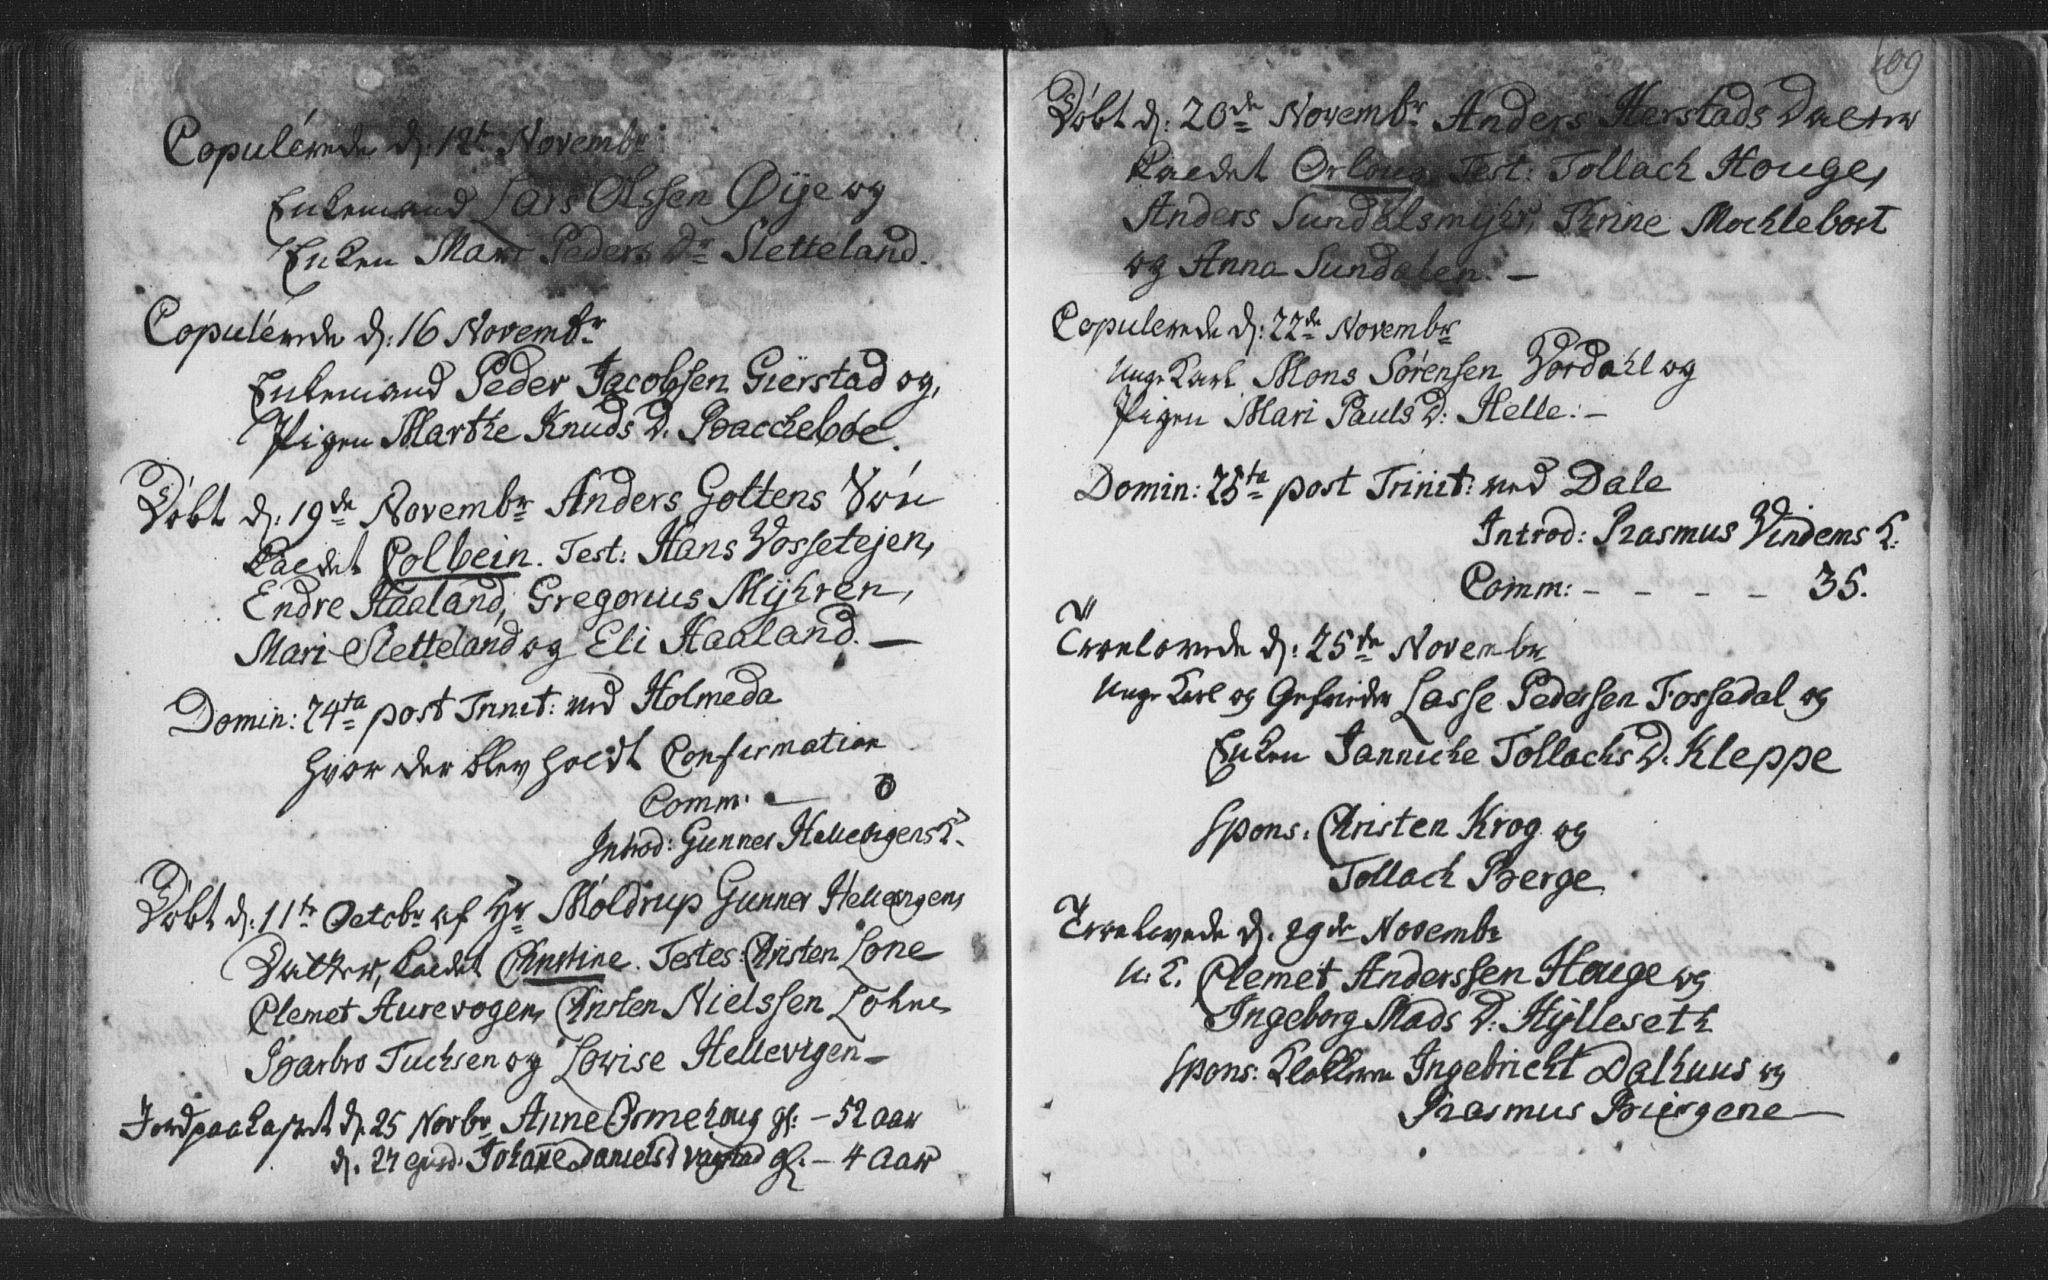 Copulérede d: 12te Novembr:
Enkemand Lars Olssen Øije og
Enken Mari Peders Dr Sletteland.
Copulérede d: 16 Novembr
Enkemand Peder Jacobsen Gierstad og,
Pigen Marthe Knuds D. Bacchebøe.
Døbt d: 19de Novembr Anders Gottens Søn
kaldet Colbein. Test: Hans Vossetejen,
Endre Haaland, Gregorius Mÿhren,
Mari Sletteland og Eli Haaland. —
Domin: 24ta post Trinit: ved Holmeda
hvor der blev holdt Confirmation
Comm: — 0
Introd: Gunner Hellevigens K.
Døbt d: 11te Octobr af Hr Møldrup Gunner Hellevigens
Datter, kaldet Christine. Testes: Christen Lone
Clemet Aurevogen, Christen Nielssen Lohne
Barbro Tuchsen og Lovise Hellevigen —
Jordpaakastet d. 25 Novbr Anne Ormehoug gl: — 52 aar
d. 27 ejusd. Johane Daniels D gl. — 4 Aar
109
Døbt d: 20de Novembr Anders Herstads Datter
kaldet Orloug. Test: Tollach Houge,
Anders Sundalsmÿhr, Thrine Mochlebost
og Anna Sundalen. —
Copulerede d: 22de Novembr
Unge Karl Mons Sørensen Vordahl og
Pigen Mari Pauls D: Helle: —
Domin: 25ta post Trinit: ved Dale
Introd: Rasmus Vindems K:
Comm: — — — — 35.
Trolovede d: 25de Novembr
Unge Karl og Gefrieder Lasse Pedersen Fossedal og
Enken Jannicke Tollachs D. Kleppe
Spons: Christen Krog og
Tollach Berge
Trolovede d. 29de Novembr
U: K. Clemet Anderssen Houge og
Ingeborg Mads D: Hÿlleseth
Spons: Klokkeren Ingebricht Dalhuus og
Rasmus Biergene —